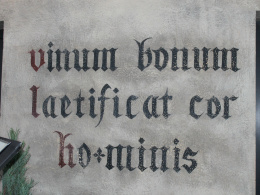 vinum bonum
laetificat cor
ho+minis